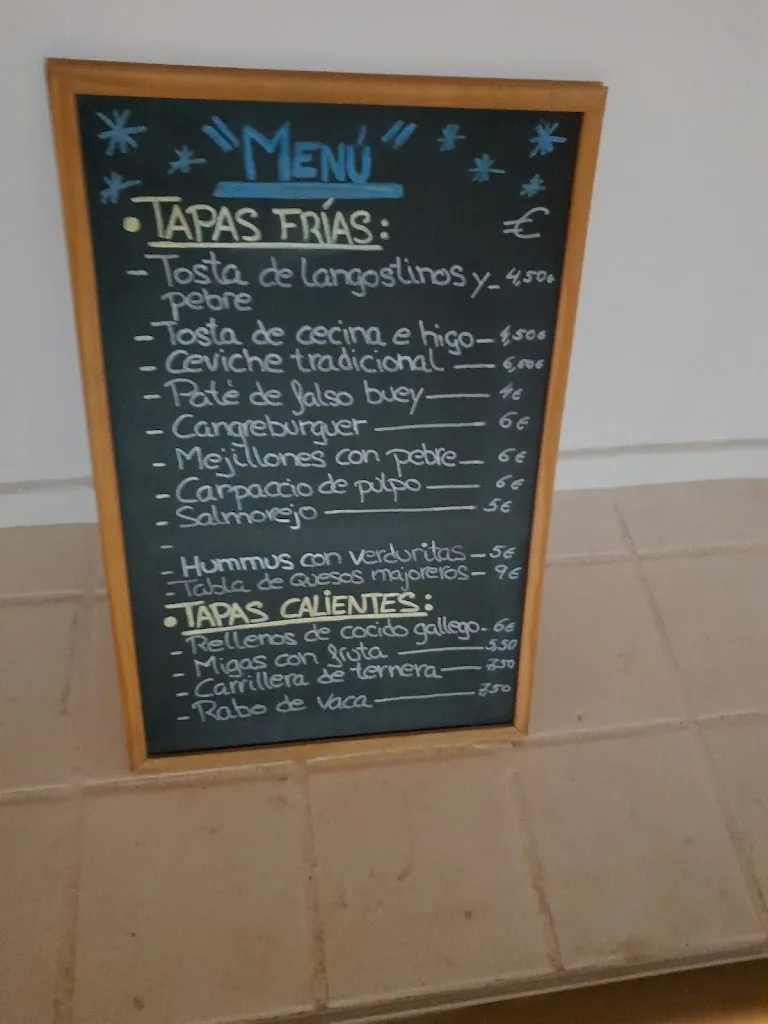 "MENÚ"
• TAPAS FRÍAS: €
- Tosta de langostinos y - 4,50€
pebre
- Tosta de cecina e higo - 4,50€
- Ceviche tradicional — 6,00€
- Paté de falso buey — 4€
- Cangreburguer — 6€
- Mejillones con pebre — 6€
- Carpaccio de pulpo — 6€
- Salmorejo — 5€
-
- Hummus con verduritas - 5€
- Tabla de quesos majoreros - 9€
• TAPAS CALIENTES:
- Rellenos de cocido gallego - 6€
- Migas con fruta — 5,50
- Carrillera de ternera — 7,50
- Rabo de vaca — 7,50